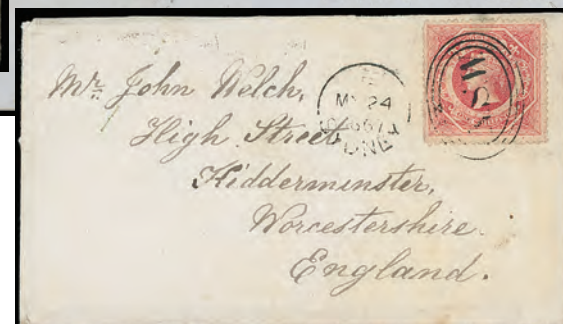 Mr. John Welch,
High Street
Kidderminster,
Worcestershire.
England.
MY 24
1867